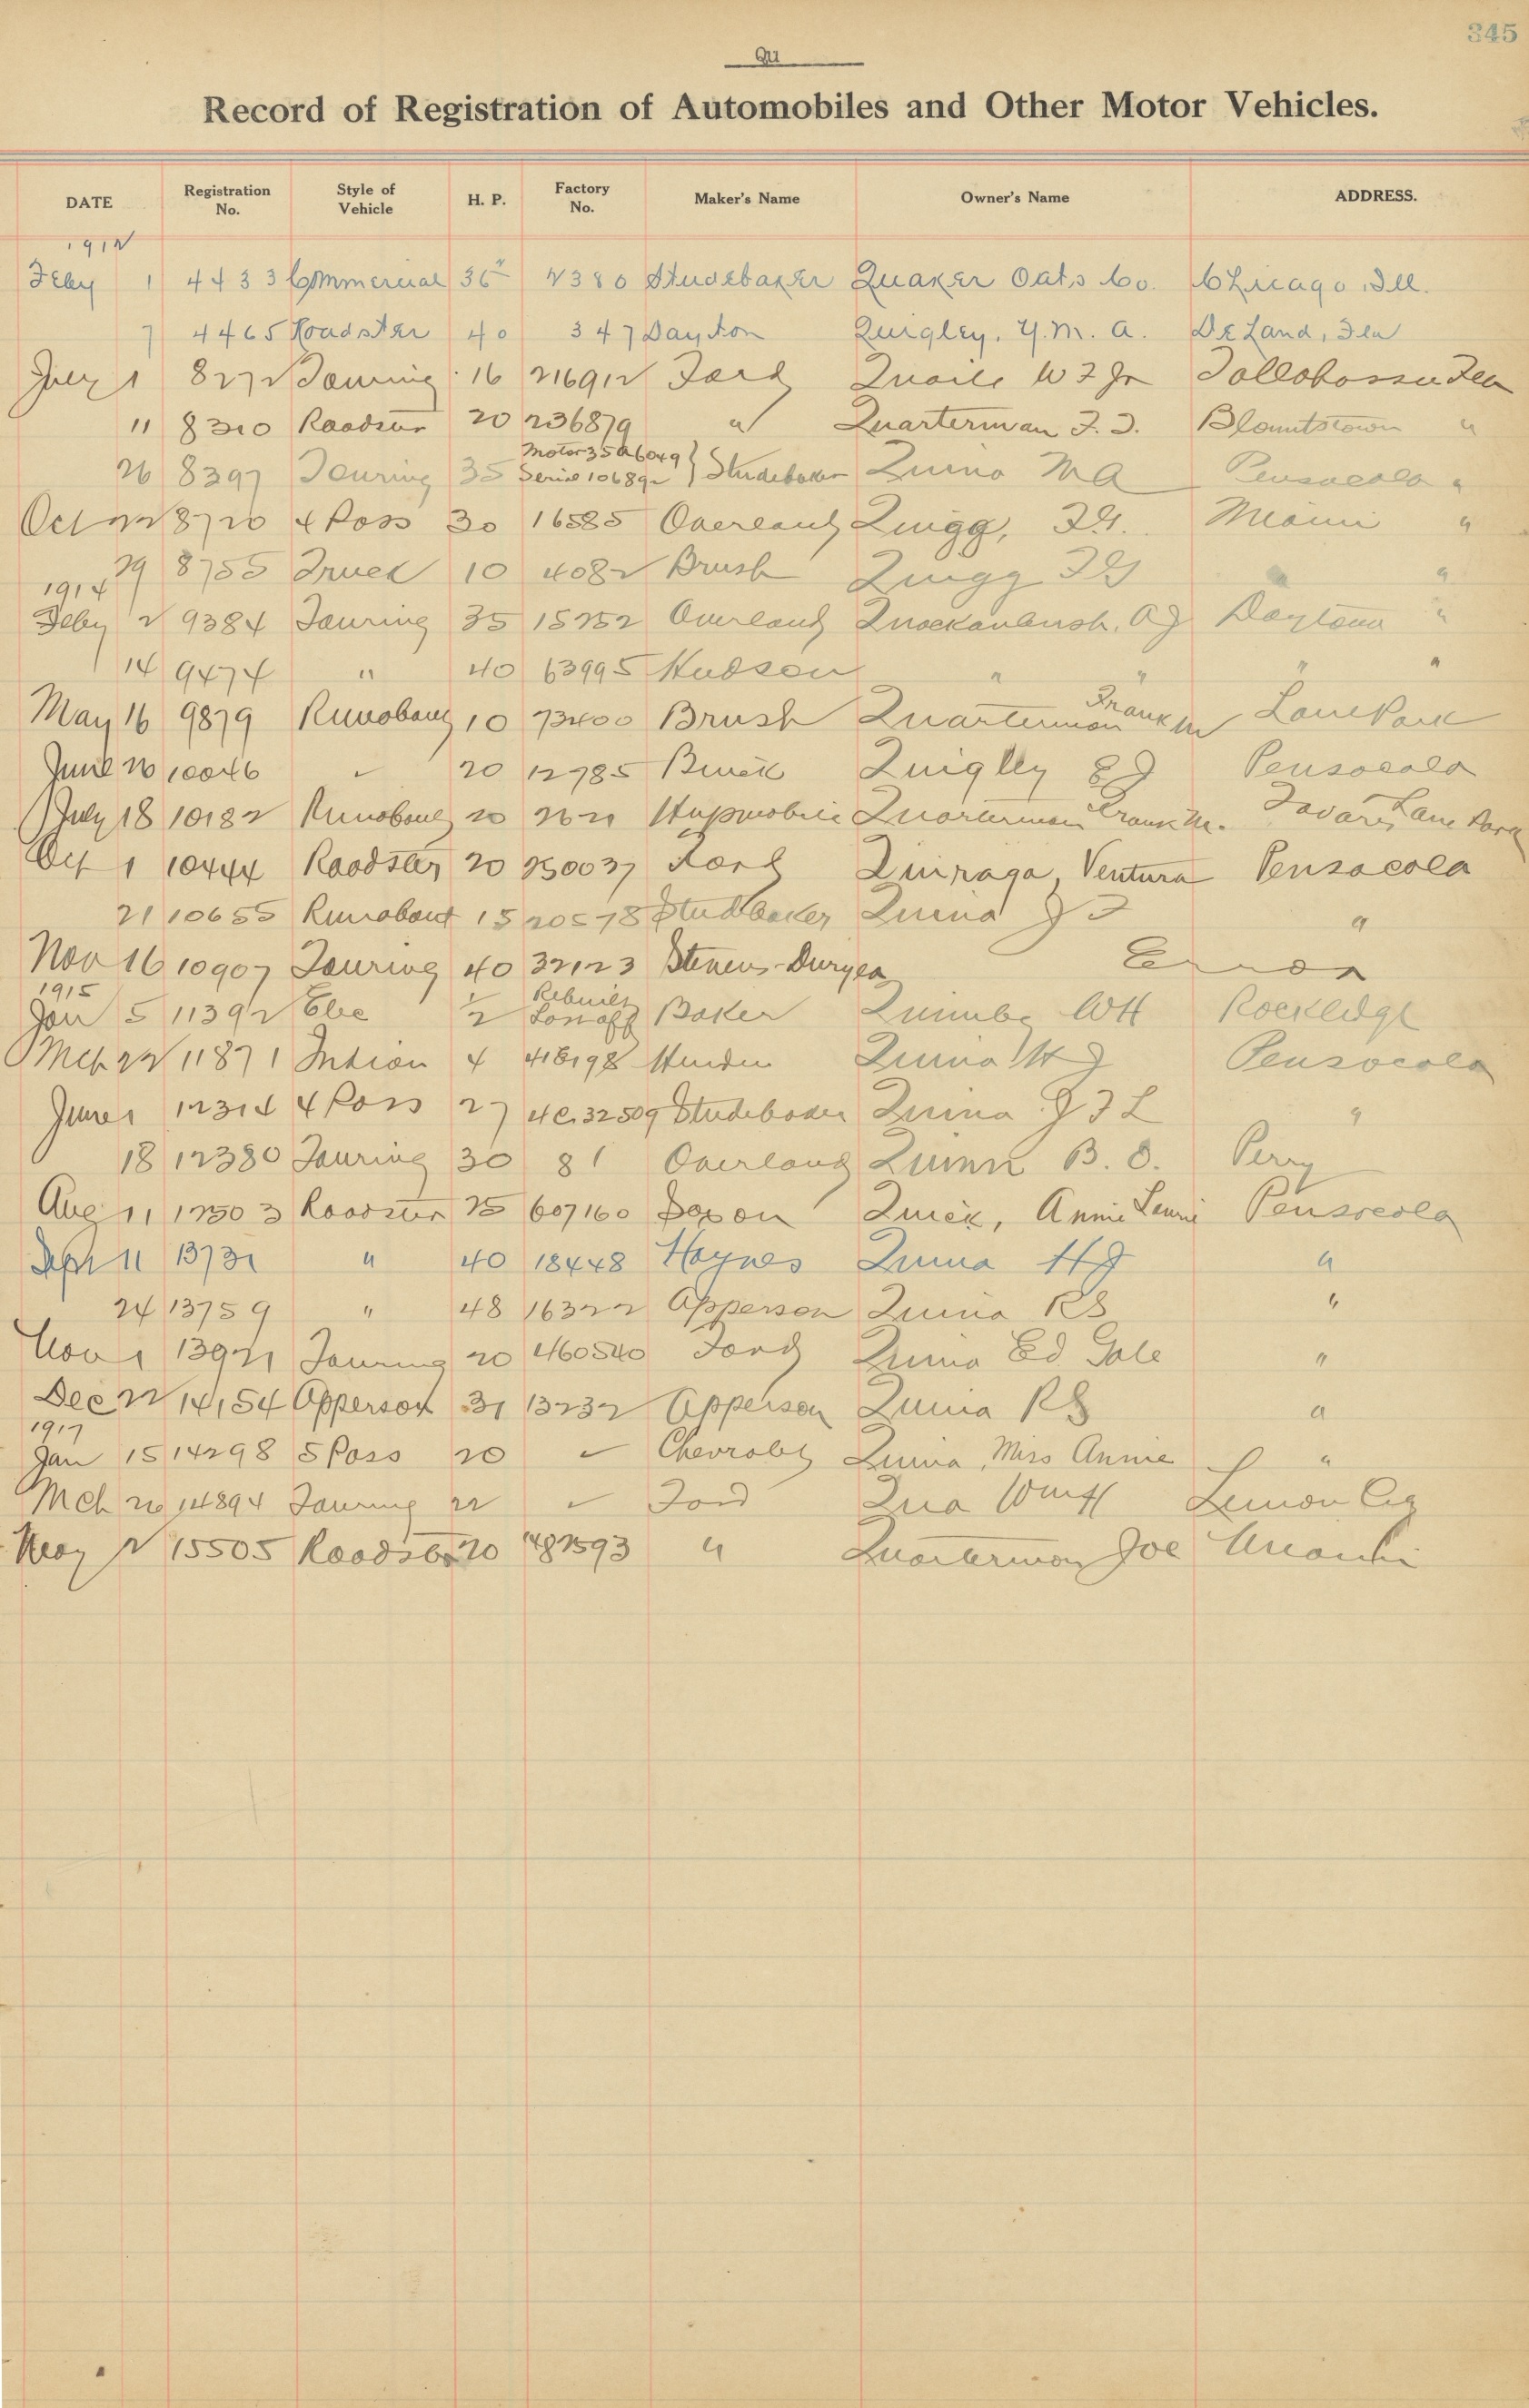 345
Qu
Record of Registration of Automobiles and Other Motor Vehicles.
DATE Registration No. Style of Vehicle H. P. Factory No. Maker's Name Owner's Name ADDRESS.
1912
Feby 1 4433 Commercial 36 2380 Studebaker Quaker Oats Co. Chicago, Ill.
7 4465 Roadster 40 347 Dayton Quigley, Y. M. A. DeLand, Fla
July 1 8272 Touring 16 216912 Ford Quaile W F Jr Tallahassee Fla
11 8320 Roadster 20 236879 " Quarterman F. J. Blountstown "
Motor 35A6049
26 8397 Touring 35 Serial 106892 } Studebaker Quina M A Pensacola "
Oct 22 8720 4 Pass 30 16585 Overland Quigg, J G. Miami "
29 8755 Truck 10 4082 Brush Quigg J G " "
1914
Feby 2 9384 Touring 35 15252 Overland Quackanbush, A J Daytona "
14 9474 " 40 63995 Hudson " " " "
May 16 9879 Runabout 10 73400 Brush Quarterman Frank M Lane Park
June 26 10046 " 20 12785 Buick Quigley E J Pensacola
July 18 10182 Runabout 20 2621 Hupmobile Quarterman Frank M. Tavares Lane Park
Oct 1 10444 Roadster 20 250037 Ford Quiraga, Ventura Pensacola
21 10655 Runabout 15 20578 Studebaker Quina J F "
Nov 16 10907 Touring 40 32123 Stevens-Duryea Error
1915
Jan 5 11392 Elec 1/2 Rebuilt Baker Quimby W H Rockledge
Mch 22 11871 Indian 4 41G198 Hendee Quina H J Pensacola
June 1 12314 4 Pass 27 4C.32509 Studebaker Quina J F L "
18 12380 Touring 30 81 Overland Quinn B. O. Perry
Aug 11 12503 Roadster 25 607160 Saxon Quick, Annie Laurie Pensacola
Sept 11 13731 " 40 18448 Haynes Quina H J "
24 13759 " 48 16322 Apperson Quina R S "
Nov 1 13921 Touring 20 460540 Ford Quina Ed Gale "
Dec 22 14154 Apperson 31 13232 Apperson Quina R S "
1917
Jan 15 14298 5 Pass 20 Chevrolet Quina, Miss Annie "
Mch 26 14894 Touring 22 Ford Qua Wm H Lemon City
May 2 15505 Roadster 20 1482593 " Quarterman Joe Miami